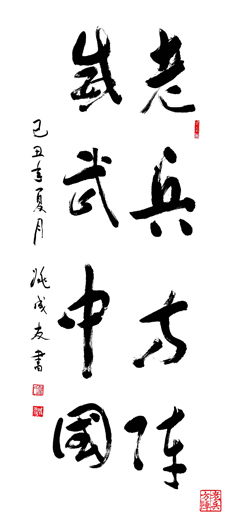 老兵方阵
威武中國
己丑年夏月 姚成友書